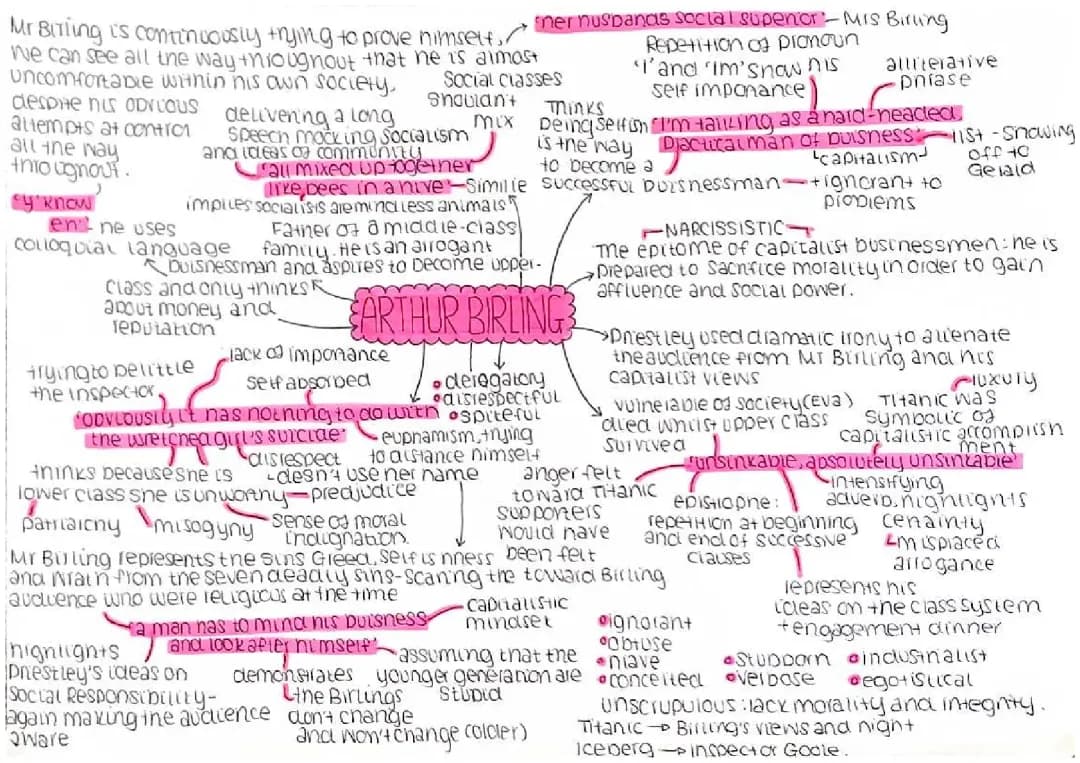 Mr Birling is continuously trying to prove himself,
we can see all the way throughout that he is almost
uncomfortable within his own society,
despite his obvious
attempts at control
all the way
throughout.
'y'know
eh:'- he uses
colloquial language
'her husbands social superior'- Mrs Birling
Social classes
shouldn't
mix
delivering a long
speech mocking socialism
and ideas of community
'all mixed up together
like bees in a hive'-Similie
implies socialists are mindless animals
Repetition of pronoun
'I' and 'Im' show his
self importance
alliterative
phrase
Thinks
being selfish
is the way
to become a
successful buisnessman
'I'm talking as a hard-headed
practical man of buisness:'
list - showing
off to
Gerald
capitalism
+ignorant to
problems
Father of a middle-class
family. He is an arrogant
buisnessman and aspires to become upper-
class and only thinks
about money and
reputation
NARCISSISTIC
The epitome of capitalist businessmen: he is
prepared to sacrifice morality in order to gain
affluence and social power.
ARTHUR BIRLING
Priestley used dramatic irony to alienate
the audience from Mr Birling and his
capitalist views
trying to belittle
the inspector
lack of importance
self absorbed
'obviously it has nothing to do with
the wretched girl's suicide'
derogatory
disrespectful
spiteful
euphamism, trying
to distance himself
disrespect
doesn't use her name
thinks because she is
lower class she is unworthy
predjudice
patriarchy
misogyny
sense of moral
indignation.
vulnerable of society (Eva)
died whilst upper class
survived
luxury
Titanic was
symbolic of
capitalistic accomplish
ment
'unsinkable, absolutely unsinkable'
anger felt
toward Titanic
supporters
would have
been felt
toward Birling
epistrophe:
repetition at beginning
and end of successive
clauses
intensifying
adverb, highlights
certainty
misplaced
arrogance
represents his
ideas on the class system
+engagement dinner
Mr Birling represents the sins Greed, Selfishness
and Wrath from the seven deadly sins-Scaring the
audience who were religious at the time
'a man has to mind his buisness
and look after himself'
capitalistic
mindset
highlights
Priestley's ideas on
Social Responsibility-
again making the audience
aware
demonstrates
the Birlings
don't change
and won't change (older)
assuming that the
younger generation are
stupid
ignorant
obtuse
niave
conceited
stubborn
verbose
industrialist
egotistical
unscrupulous: lack morality and integrity.
Titanic → Birling's views and night
Iceberg → Inspector Goole.